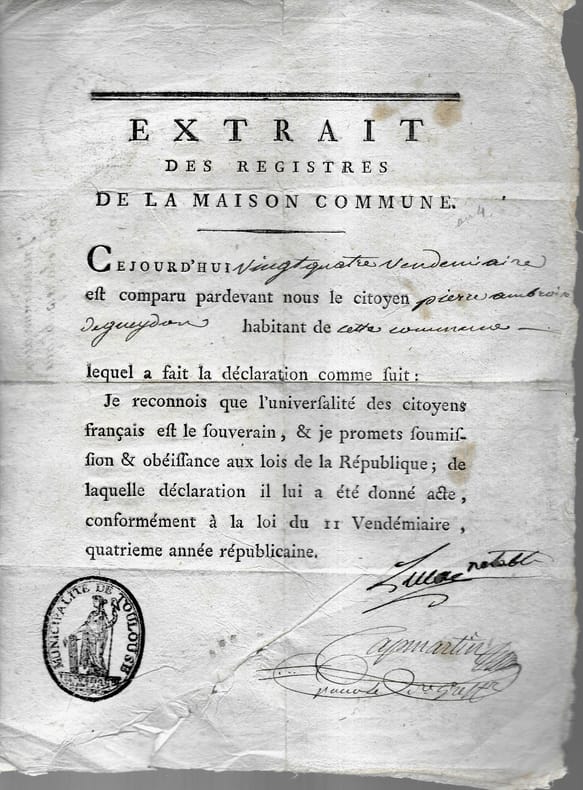 EXTRAIT
DES REGISTRES
DE LA MAISON COMMUNE.
an 4.
CEJOURD'HUI vingt quatre Vendemiaire
eſt comparu pardevant nous le citoyen pierre ambroise
degueydon habitant de cette commune
lequel a fait la déclaration comme ſuit :
Je reconnois que l'univerſalité des citoyens
français eſt le ſouverain, & je promets ſoumiſ-
ſion & obéiſſance aux lois de la République ; de
laquelle déclaration il lui a été donné acte,
conformément à la loi du 11 Vendémiaire,
quatrieme année républicaine.
notable
Capmartin
MUNICIPALITÉ DE TOULOUSE